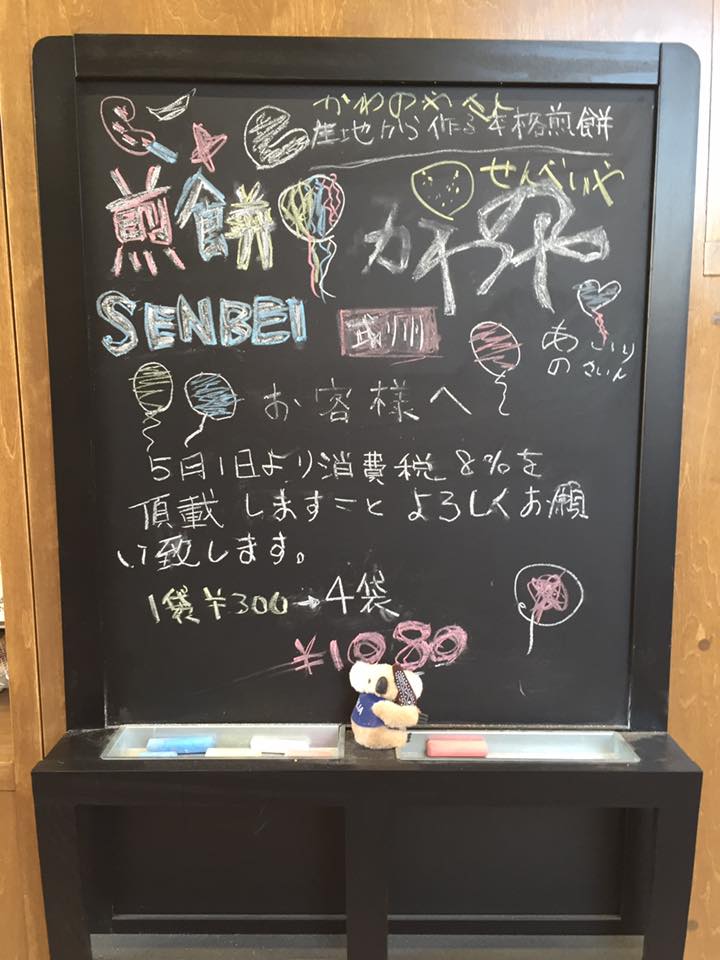 かわのやさん
生地から作る本格煎餅
せんべいや
煎餅
SENBEI
武州
あの
さいん
お客様へ
5月1日より消費税8%を
頂載しますことよろしくお願
い致します。
1袋¥300→4袋
¥1080